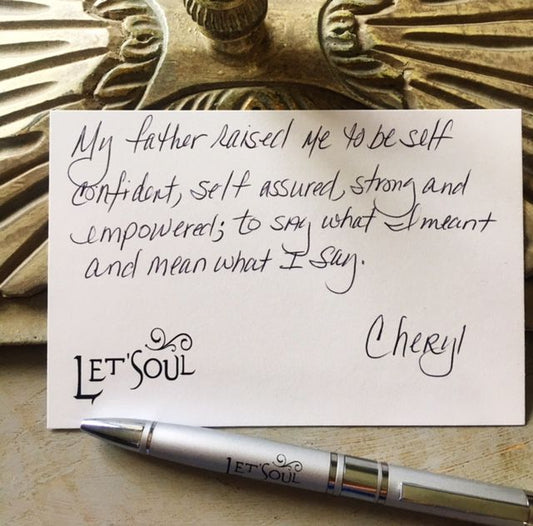 My father raised me to be self
confident, self assured, strong and
empowered; to say what I meant
and mean what I say.
Cheryl
LET'SOUL
LET'SOUL